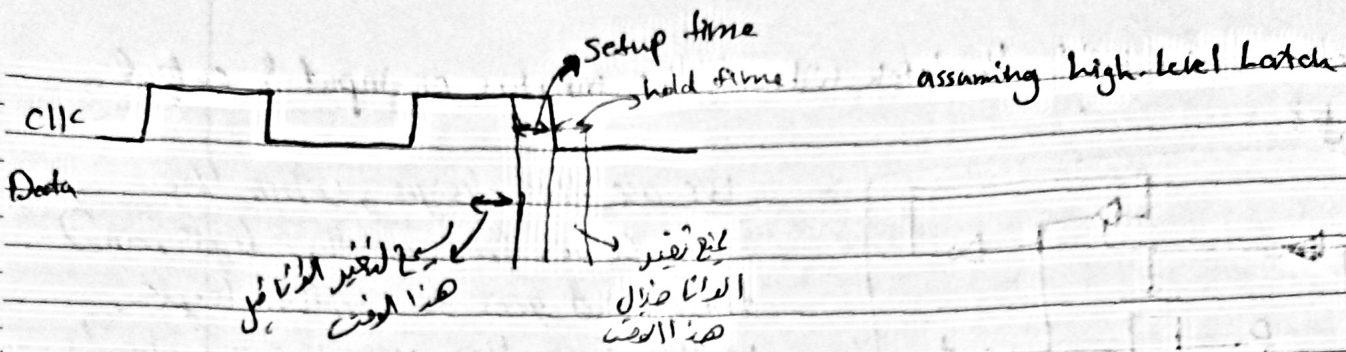 setup time
hold time
assuming high-level Latch
Clk
Data
يسمح لتغير الداتا قبل
هذا الوقت
يمنع تغير
الداتا خلال
هذا الوقت